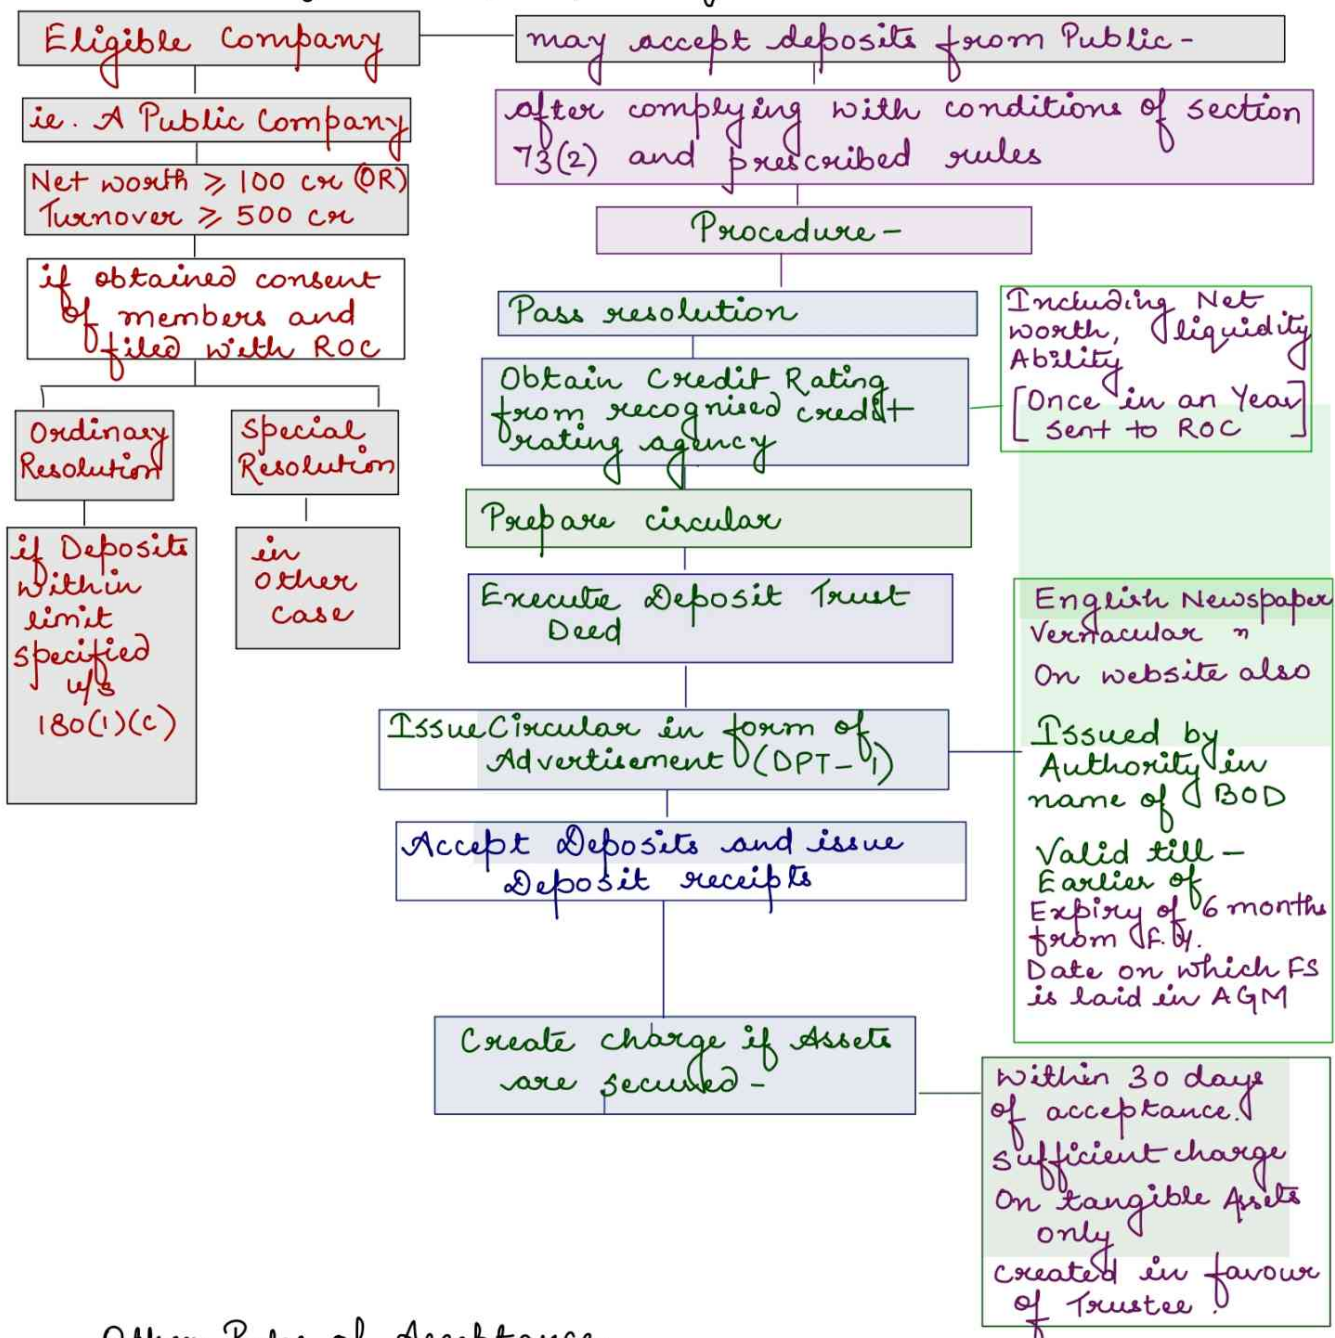 Eligible Company
may accept deposits from Public-
ie. A Public Company
Net worth ⩾ 100 cr (OR)
Turnover ⩾ 500 cr
if obtained consent
of members and
filed with ROC
Ordinary
Resolution
Special
Resolution
if Deposits
within
limit
specified
u/s
180(1)(c)
in
other
case
after complying with conditions of section
73(2) and prescribed rules
Procedure-
Pass resolution
Obtain Credit Rating
from recognised credit
rating agency
Including Net
worth, liquidity
Ability
[Once in an Year
sent to ROC]
Prepare circular
Execute Deposit Trust
Deed
Issue Circular in form of
Advertisement (DPT-1)
English Newspaper
Vernacular "
On website also
Issued by
Authority in
name of BOD
Valid till-
Earlier of
Expiry of 6 months
from F.Y.
Date on which FS
is laid in AGM
Accept Deposits and issue
Deposit receipts
Create charge if Assets
are secured-
Within 30 days
of acceptance.
Sufficient charge
On tangible Assets
only
Created in favour
of Trustee.
of Acceptance